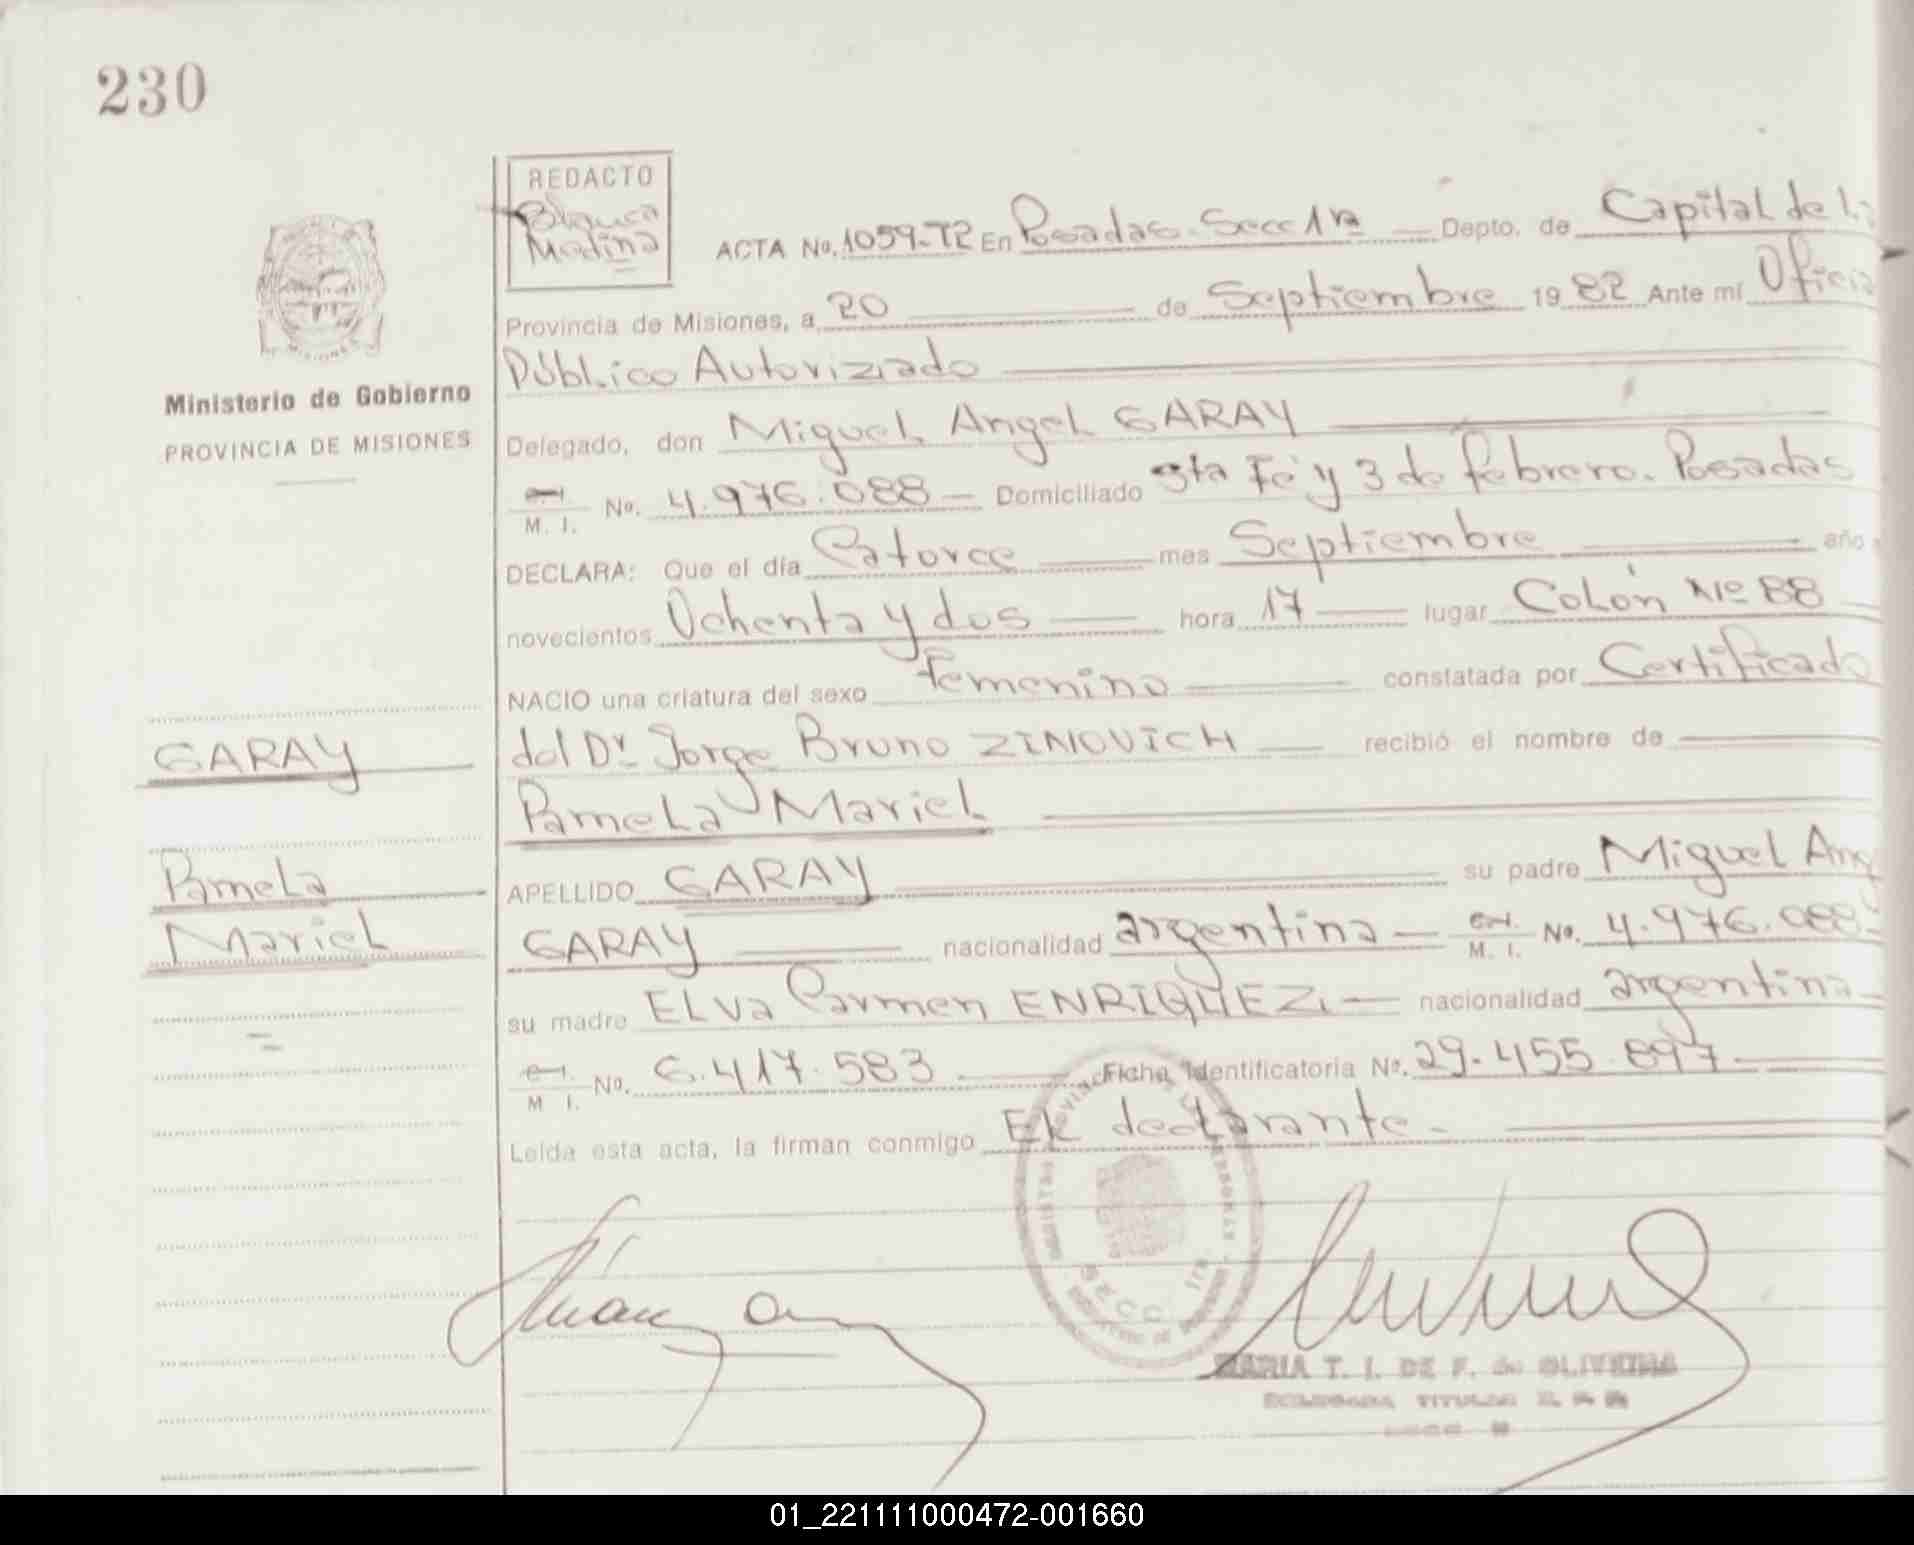 230
REDACTO
Blanca
Medina
ACTA No. 1059-T2 En Posadas. Secc 1ra Depto. de Capital de la
Provincia de Misiones, a 20 de Septiembre 1982 Ante mí Oficia
Público Autorizado
MISIONES
Ministerio de Gobierno
PROVINCIA DE MISIONES
Delegado, don Miguel Angel GARAY
M. I. No. 4.976.088 Domiciliado Sta Fé y 3 de febrero. Posadas
DECLARA: Que el día Catorce mes Septiembre año
novecientos Ochenta y dos hora 17 lugar Colón Nº 88
NACIO una criatura del sexo Femenino constatada por Certificado
GARAY
del Dr. Jorge Bruno ZINOVICH recibió el nombre de
Pamela Mariel
Pamela
Mariel
APELLIDO GARAY su padre Miguel Ang
GARAY nacionalidad argentina M. I. No. 4.976.088
su madre Elva Carmen ENRIQUEZ nacionalidad argentina
M I. No. 6.417.583 Ficha Identificatoria No. 29.455.897
Leída esta acta, la firman conmigo El declarante.
SECC. 1ra.
MARIA T. I. DE F. de OLIVEIRA
01_221111000472-001660